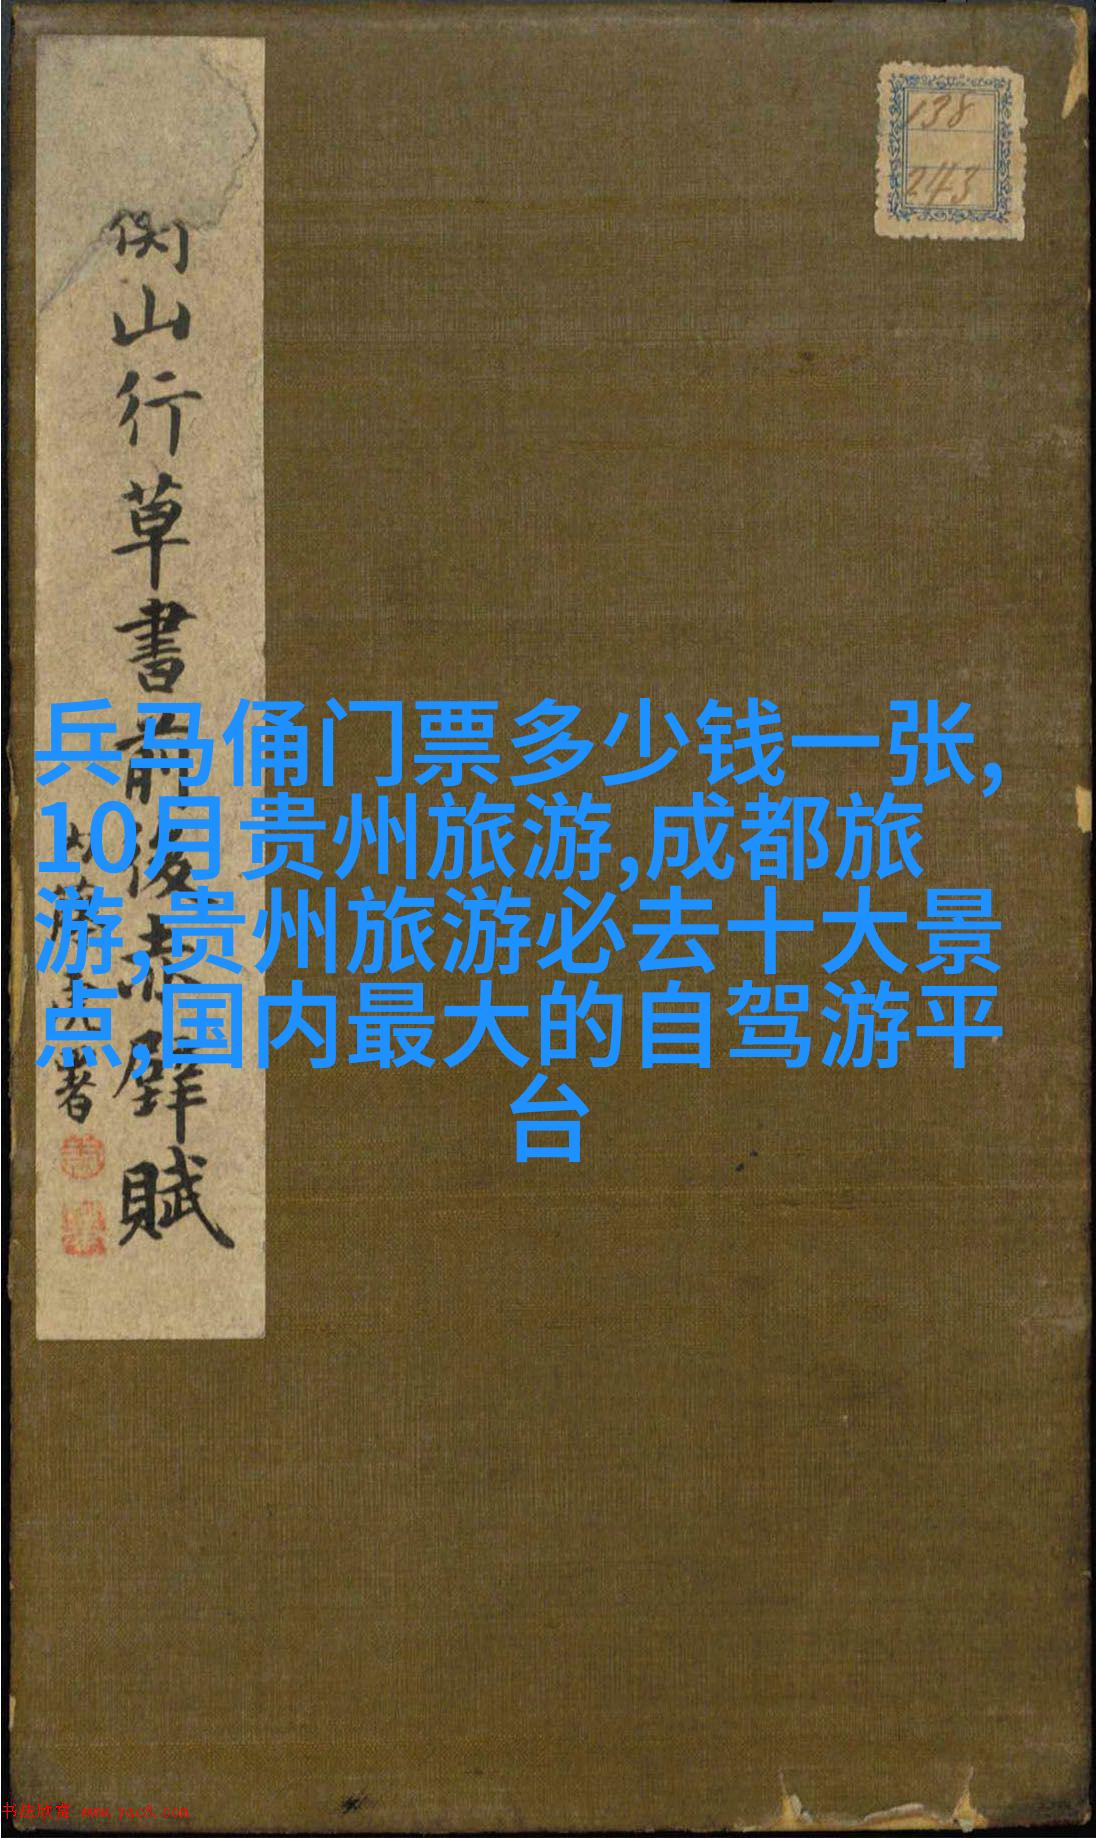 侧山行草書前後赤壁賦
138
243
兵马俑门票多少钱一张,
10月贵州旅游,成都旅
游,贵州旅游必去十大景
点,国内最大的自驾游平
台
书法欣赏 www.yac8.com